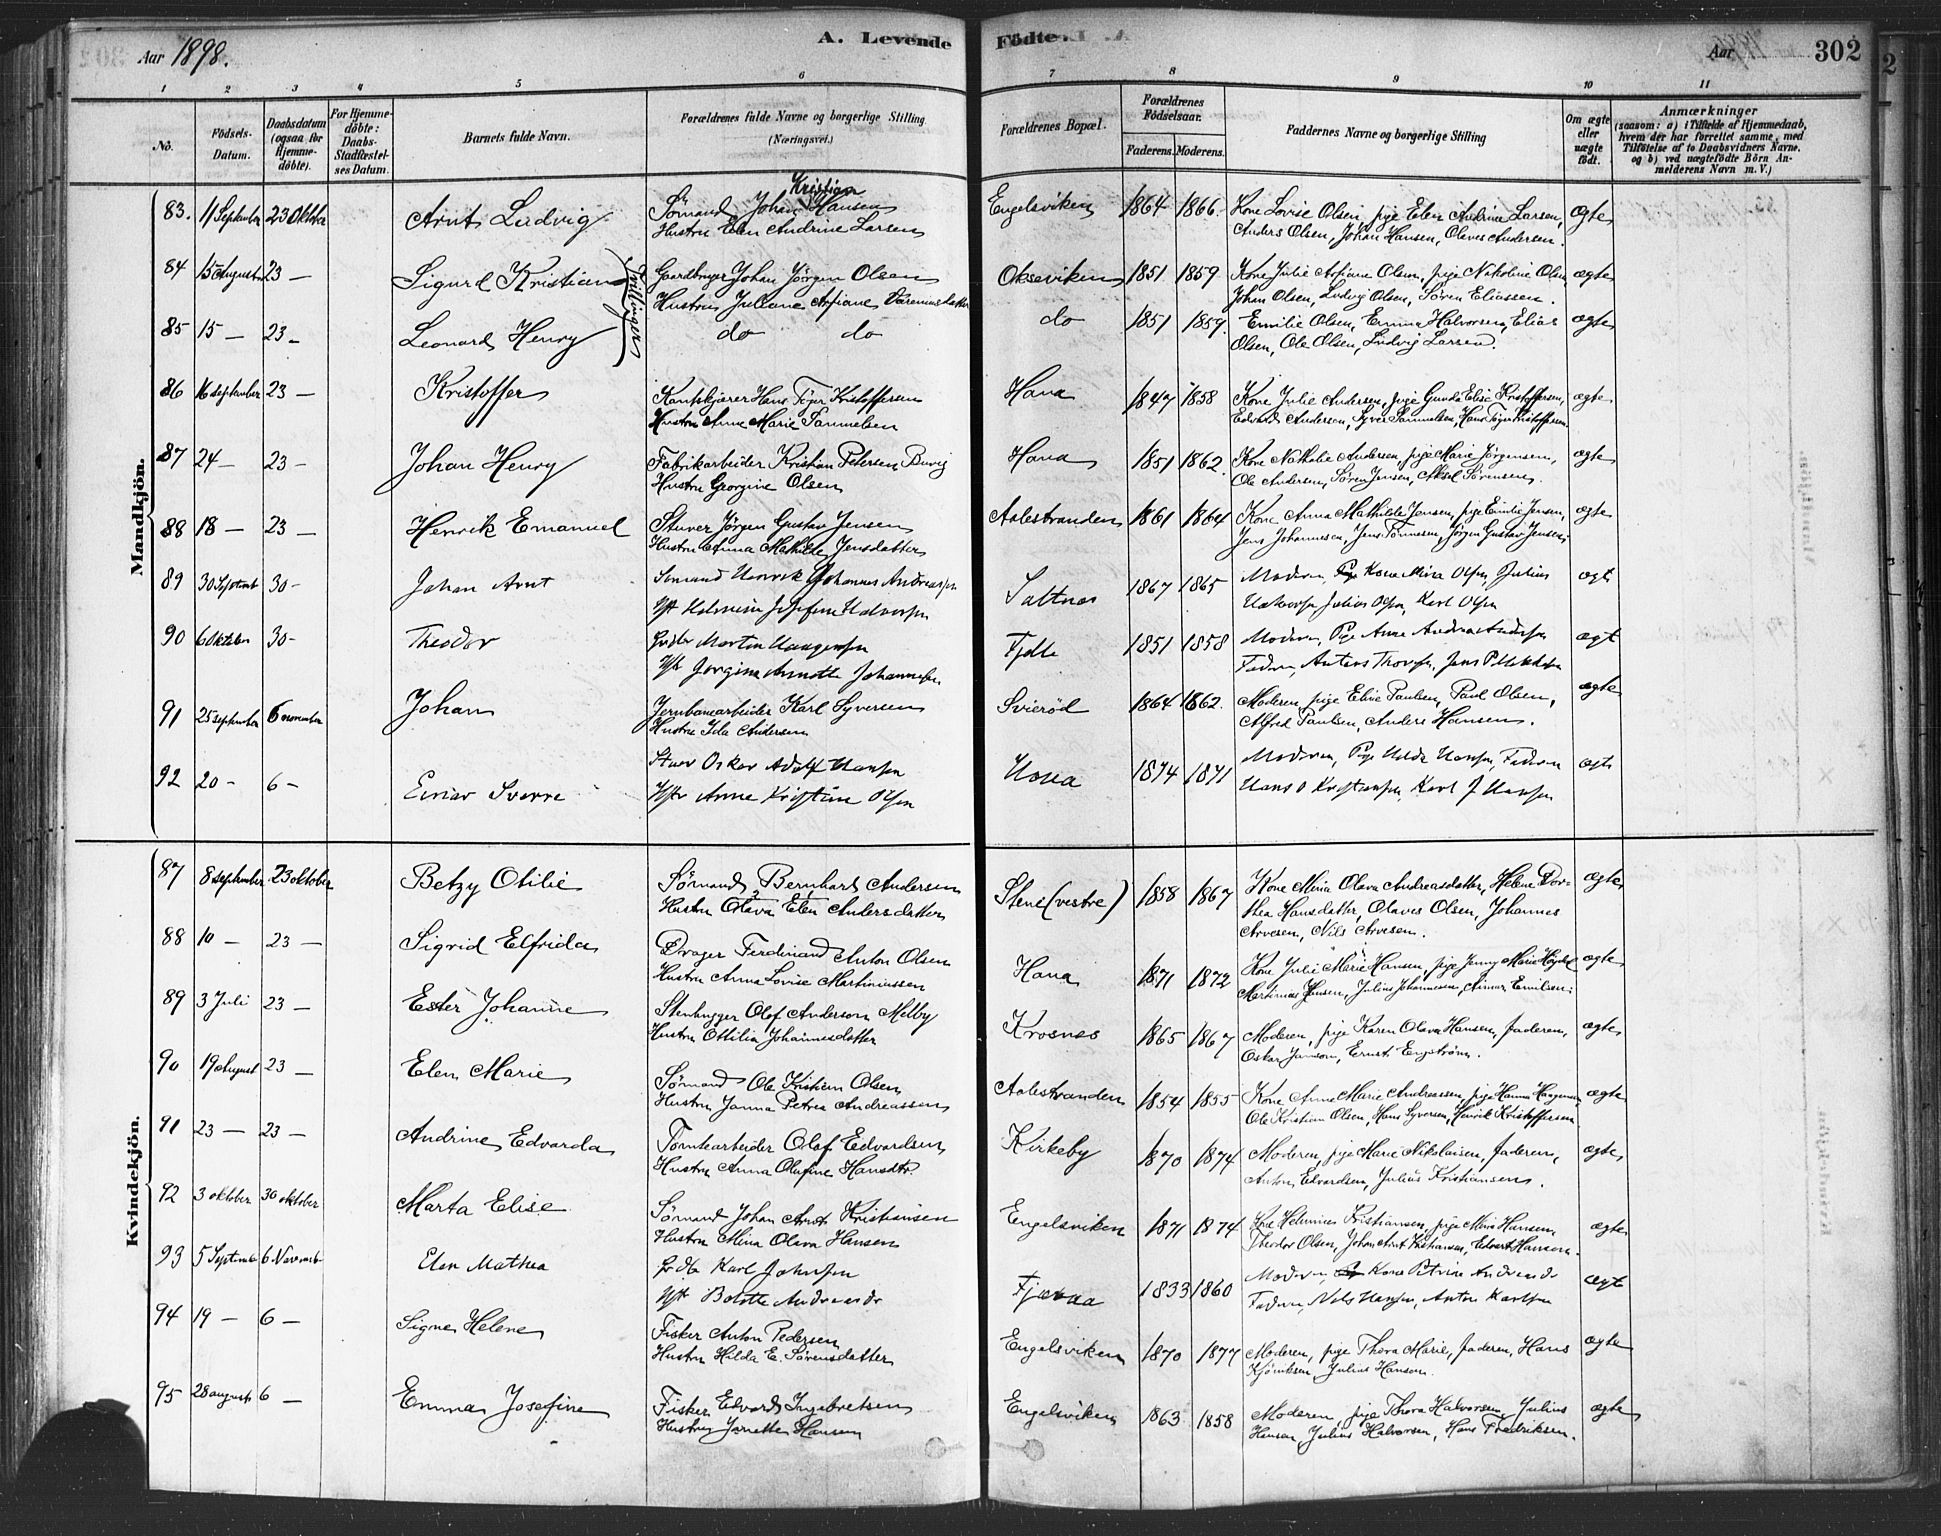 Aar 1898.
A. Levende
Födte.
Aar
302
1 2 3 4 5 6 7 8 9 10 11
No.
Födsels-Datum.
Daabsdatum (ogsaa for Hjemmedöbte).
For Hjemmedöbte: Daabs-Stadfæstelses Datum.
Barnets fulde Navn.
Forældrenes fulde Navne og borgerlige Stilling (Næringsvei.)
Forældrenes Bopæl.
Forældrenes Födselsaar.
Faderens. Moderens.
Faddernes Navne og borgerlige Stilling
Om ægte eller uægte födt.
Anmærkninger
(saasom: a) i Tilfælde af Hjemmedaab,
hvem der har forrettet samme, med
Tilföielse af to Daabsvidners Navne,
og b) ved uægtefödte Börn An-
melderens Navn m. V.)
Mandkjön.
83. 11 September 23 Oktober Arnt Ludvig Sömand Johan Kristian Hansen Engelsviken 1864 1866. Kone Lovise Olsen, pige Elen Andrine Larsen, ægte
Hustru Elen Andrine Larsen Anders Olsen, Johan Hansen, Olaves Andersen.
84 15 August 23 — Sigurd Kristian Gaardbruger Johan Jörgen Olsen Okseviken 1851 1859. Kone Julie Olsen, pige Nikoline Olsen ægte
Tvillinger
Hustru Juliane Johan Olsen, Ludvig Olsen, Sören Eliassen.
85 15 — 23 — Leonard Henry do do do 1851 1859. Emilie Olsen, Emma Halvorsen, Elias ægte
Olsen, Ole Olsen, Ludvig Larsen.
86 16 september 23 — Kristoffer Hans Kristoffersen Hana 1847 1858 Kone Julie Andersen, pige Gunda Elise Kristoffersen, ægte
Hustru Anne Marie Samuelsen Edvard Andersen, Syver Samuelsen, Hans Kristoffersen
87 24 — 23 — Johan Henry Fabrikarbeider Kristian Petersen Buvig Hana 1851 1862. Kone Nathalie Andersen, pige Marie Jörgensen, ægte
Hustru Georgine Olsen Ole Andersen, Sören Jensen, Aksel Sörensen.
88 18 — 23 — Henrik Emanuel Stuver Jörgen Gustav Jensen Aalestranden 1861 1864 Kone Anna Mathilde Jensen, pige Emilie Jensen, ægte
Hustru Anna Mathilde Jensdatter Jens Johannesen, Jens Tönnesen, Jörgen Gustav Jensen
89 30 Septemb 30 — Johan Arnt Sömand Henrik Johannes Andreassen Saltnes 1867 1865 Moderen, Kone Mina Olsen, Julius ægte
Josefine Halvorsen Halvorsen, Julius Olsen, Karl Olsen
90 6 Oktober 30 — Theodor Morten Haagensen Fjelle 1851 1858 Moderen, Pige Anne Andrea Andersen ægte
Jörgine Annette Johannesen Faderen, Antens Thoresen, Jens P.
91 25 september 6 november Johan Jernbanearbeider Karl Syversen Svieröd 1864 1862. Moderen, pige Eline Paulsen, Paul Olsen, ægte
Hustru Ida Andersen Alfred Paulsen, Anders Hansen.
92 20 — 6 — Einar Sverre Stuer Oskar Adolf Hansen Hona 1874 1871 Moderen, Pige Hulda Hansen, Faderen ægte
Anne Kristine Olsen Hans O Kristiansen, Karl J Hansen
Kvindekjön.
87 8 september 23 oktober Betzy Otilie Sömand Bernhard Andersen Stene (vestre) 1858 1867 Kone Mina Olava Andreasdatter, Helene Dor- ægte
Hustru Olava Elen Andersdatter thea Hansdatter, Olaves Olsen, Johannes
Arvesen, Nils Arvesen.
88 10 — 23 — Sigrid Elfrida Drager Ferdinand Anton Olsen Hana 1871 1872 Kone Julie Marie Hansen, pige Jenny Marie ægte
Hustru Anna Lovise Martiniussen Martinius Hansen, Julius Johannesen, Einar Emilsen
89 3 Juli 23 — Ester Johanne Stenhugger Olof Anderson Melby Krosnes 1865 1867 Moderen, pige Karen Olava Hansen, faderen, ægte
Hustru Ottilia Johannesdatter Oskar Janson, Ernst Engström.
90 19 August 23 — Elen Marie Sömand Ole Kristian Olsen Aalestranden 1854 1855 Kone Anne Marie Andreassen, pige Hanna Haagensen ægte
Hustru Janna Petrea Andreassen Ole Kristian Olsen, Hans Syversen, Henrik Kristoffersen.
91 23 — 23 — Andrine Edvarda Tomtearbeider Olaf Edvardsen Kirkeby 1870 1874 Moderen, pige Marie Nikolaisen, faderen, ægte
Hustru Anna Olufine Hansdtr. Anton Edvardsen, Julius Kristiansen.
92 3 oktober 30 oktober Marta Elise Sömand Johan Arnt Kristiansen Engelsviken 1871 1874 Kone Kristiansen, pige Mina Hansen, ægte
Hustru Mina Olava Hansen Theodor Olsen, Johan Arnt Kristiansen, Edvart Hansen.
93 5 September 6 November Elen Mathea Karl Johnsen 1833 1860 Moderen, Kone Petrine ægte
Faderen, Nils Hansen, Anton Karlsen
94 19 — 6 — Signe Helene Fisker Anton Pedersen Engelsviken 1870 1877 Moderen, pige Thora Marie, faderen, Hans ægte
Hustru Hilda E. Sörensdatter Julius Hansen.
95 28 august 6 — Emma Josefine Fisker Edvard Ingebretsen Engelsviken 1863 1858 Moderen, pige Thora Halvorsen, Julius ægte
Hustru Janette Hansen Hansen, Julius Halvorsen, Hans Fredriksen.